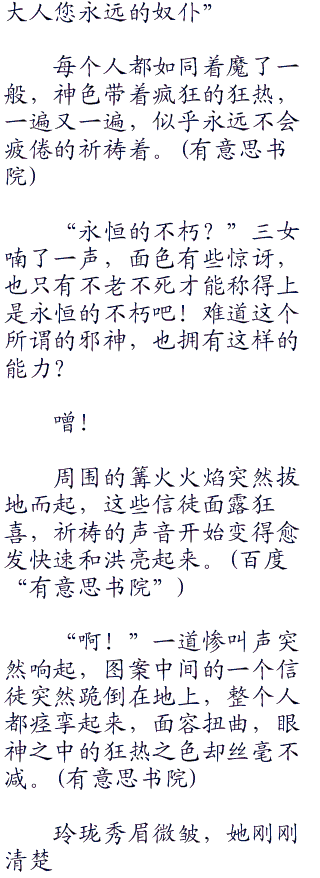 大人您永远的奴仆”
每个人都如同着魔了一
般，神色带着疯狂的狂热，
一遍又一遍，似乎永远不会
疲倦的祈祷着。(有意思书
院)
“永恒的不朽？”三女
喃了一声，面色有些惊讶，
也只有不老不死才能称得上
是永恒的不朽吧！难道这个
所谓的邪神，也拥有这样的
能力？
噌！
周围的篝火火焰突然拔
地而起，这些信徒面露狂
喜，祈祷的声音开始变得愈
发快速和洪亮起来。(百度
“有意思书院”)
“啊！”一道惨叫声突
然响起，图案中间的一个信
徒突然跪倒在地上，整个人
都痉挛起来，面容扭曲，眼
神之中的狂热之色却丝毫不
减。(有意思书院)
玲珑秀眉微皱，她刚刚
清楚